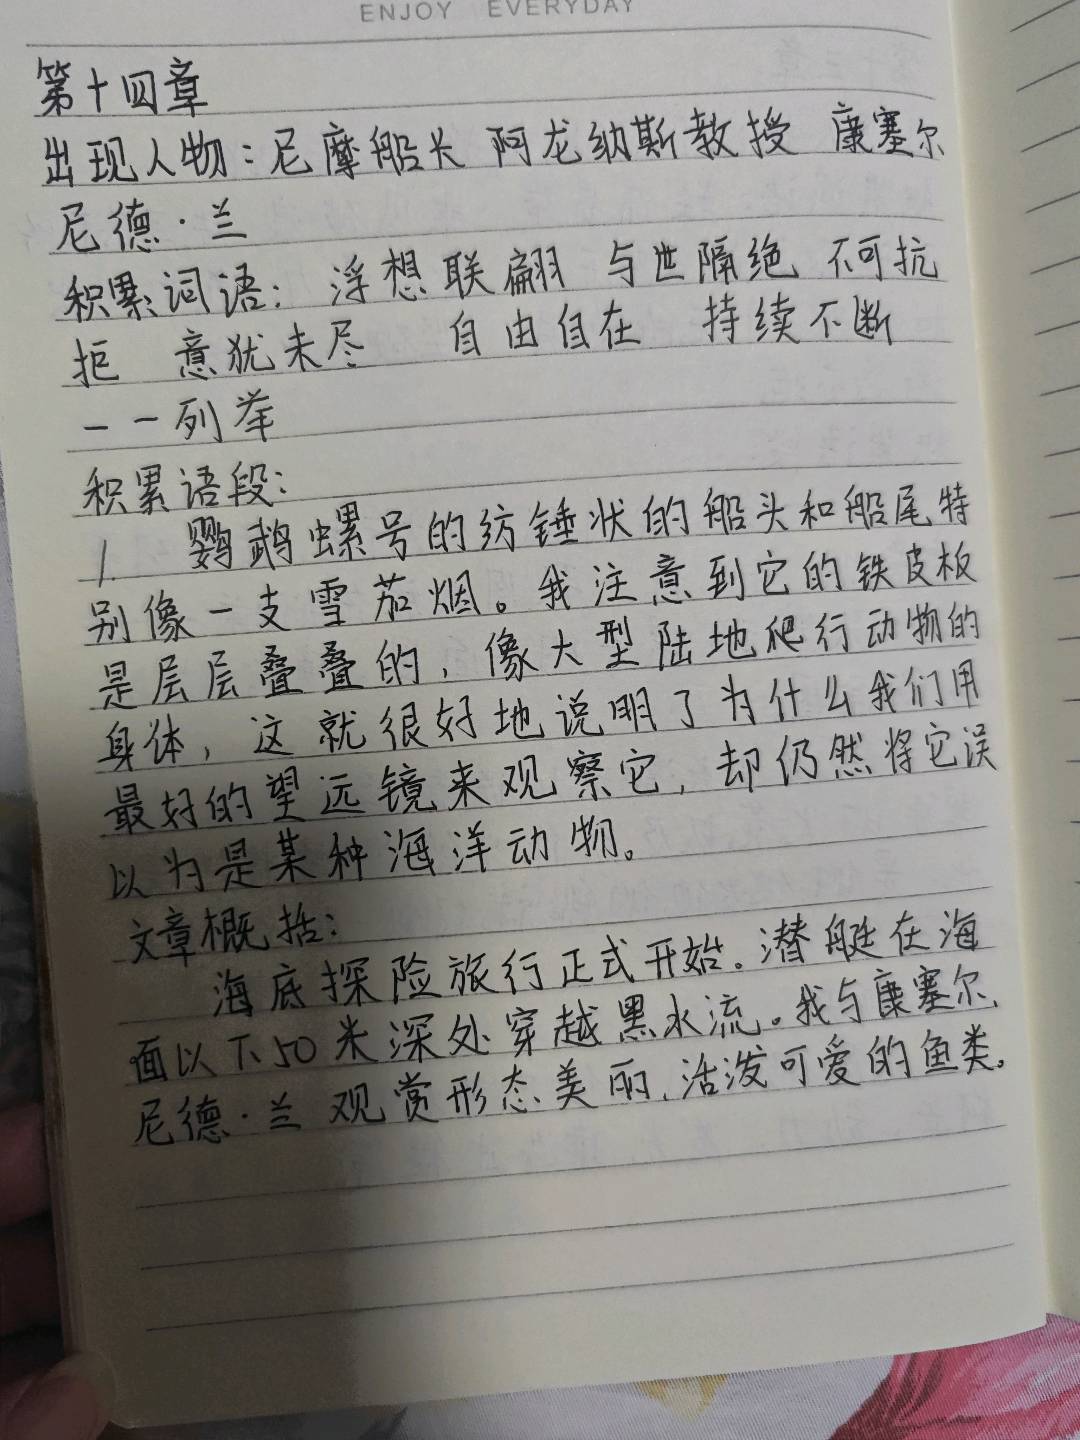 ENJOY EVERYDAY
第十四章
出现人物：尼摩船长 阿龙纳斯教授 康塞尔
尼德·兰
积累词语： 浮想联翩 与世隔绝 不可抗
拒 意犹未尽 自由自在 持续不断
一一列举
积累语段：
1. 鹦鹉螺号的纺锤状的船头和船尾特
别像一支雪茄烟。我注意到它的铁皮板
是层层叠叠的，像大型陆地爬行动物的
身体，这就很好地说明了为什么我们用
最好的望远镜来观察它，却仍然将它误
以为是某种海洋动物。
文章概括：
海底探险旅行正式开始。潜艇在海
面以下50米深处穿越黑水流。我与康塞尔、
尼德·兰观赏形态美丽、活泼可爱的鱼类。